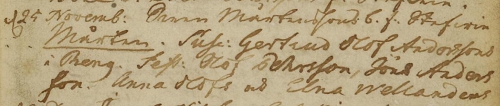 d 25 Novemb: Deren Mårtenssons b. f.
Mårten. Sus: Gertrud Olof Anderssons
i Beng. Test: Olof Pehrsson, Jöns Anders
son. Anna Olofs ud Elna Wellanders